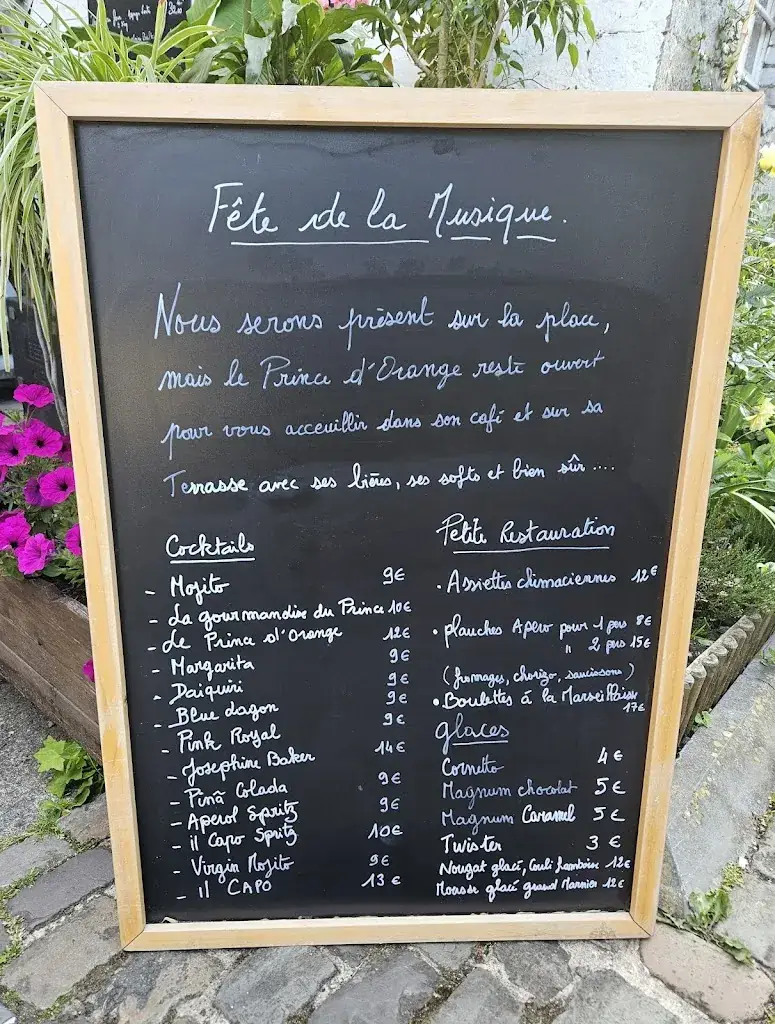 Fête de la Musique.
Nous serons présent sur la place,
mais le Prince d'Orange reste ouvert
pour vous acceuillir dans son café et sur sa
Terrasse avec ses bières, ses softs et bien sûr ....
Cocktails
- Mojito 9€
- La gourmandise du Prince 10€
- Le Prince d'Orange 12€
- Margarita 9€
- Daiquiri 9€
- Blue dagon 9€
- Pink Royal 9€
- Josephine Baker 14€
- Pinã Colada 9€
- Aperol Spritz 9€
- il Capo Spritz 10€
- Virgin Mojito 9€
- il CAPO 13€
Petite Restauration
• Assiettes chimaciennes 12€
• planches Apero pour 1 pers 8€
" 2 pers 15€
(fromages, chorizo, saucissons)
• Boulettes à la Marseillaise
17€
glaces
Cornetto 4€
Magnum chocolat 5€
Magnum Caramel 5€
Twister 3€
Nougat glacé, Couli framboise 12€
Mousse glacé grand Marnier 12€